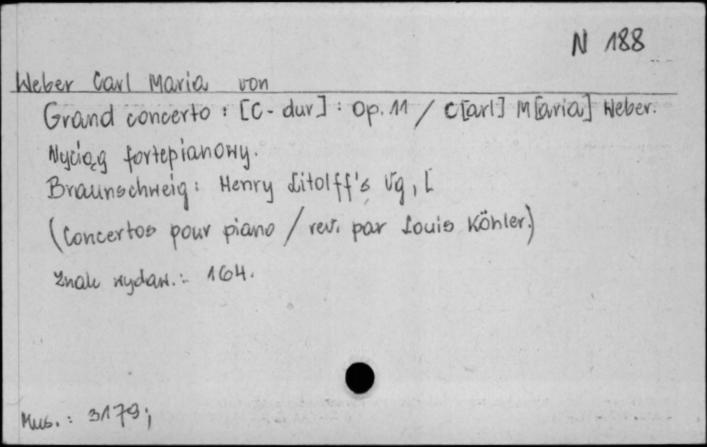 N 188
Weber Carl Maria von
Grand concerto : [C-dur] : Op. 11 / C[arl] M[aria] Weber.
Wyciąg fortepianowy.
Braunschweig : Henry Litolff's Vg, [
(Concertos pour piano / rev. par Louis Köhler.)
Znak wydaw.: 164.
Mus. : 3179;